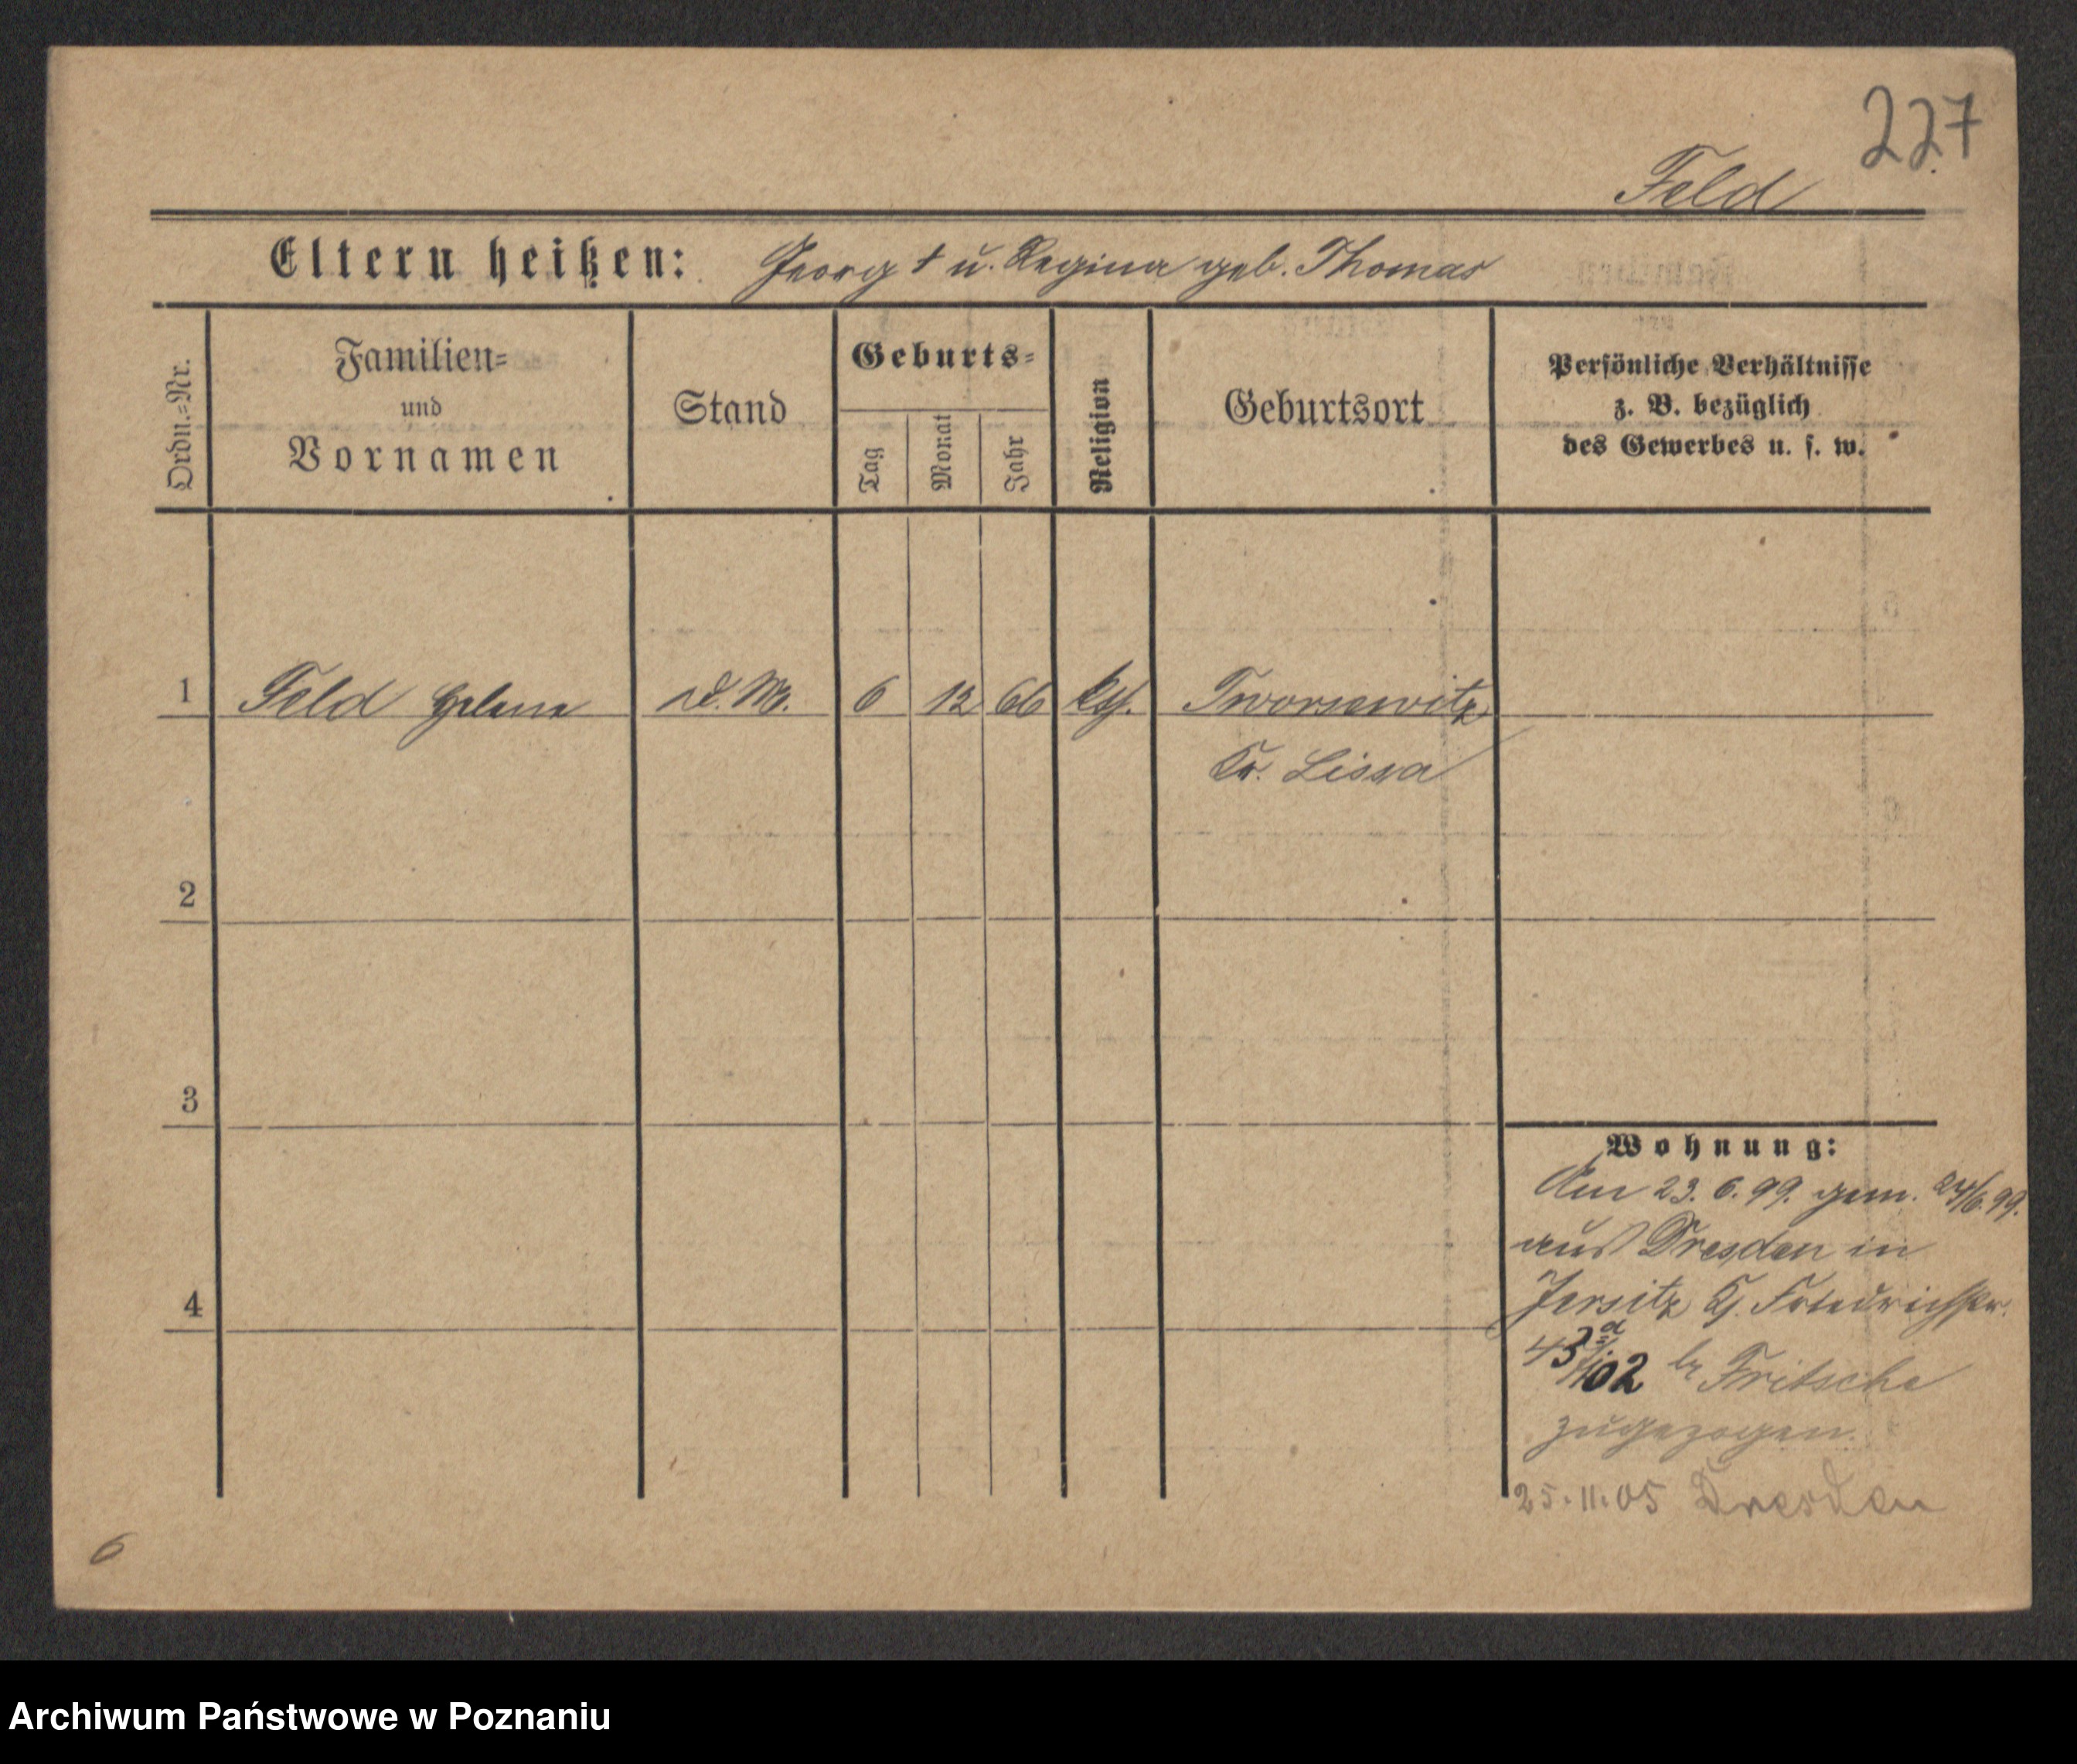 227
Feld
Eltern heißen: Georg † u. Regina geb. Thomas
Ordn.=Nr.
Familien=
und
Vornamen
Stand
Geburts=
Tag
Monat
Jahr
Religion
Geburtsort
Persönliche Verhältnisse
z. B. bezüglich
des Gewerbes u. s. w.
1 Feld Helene d. M. 6 12 66 kth. Tworsewitz
Kr. Lissa
2
3
4
Wohnung:
Am 23. 6. 99. gem. 24/6. 99.
aus Dresden in
Jersitz Gr. Friedrichstr.
102 Fritsche
zugezogen.
25.11.05 Dresden
6
Archiwum Państwowe w Poznaniu